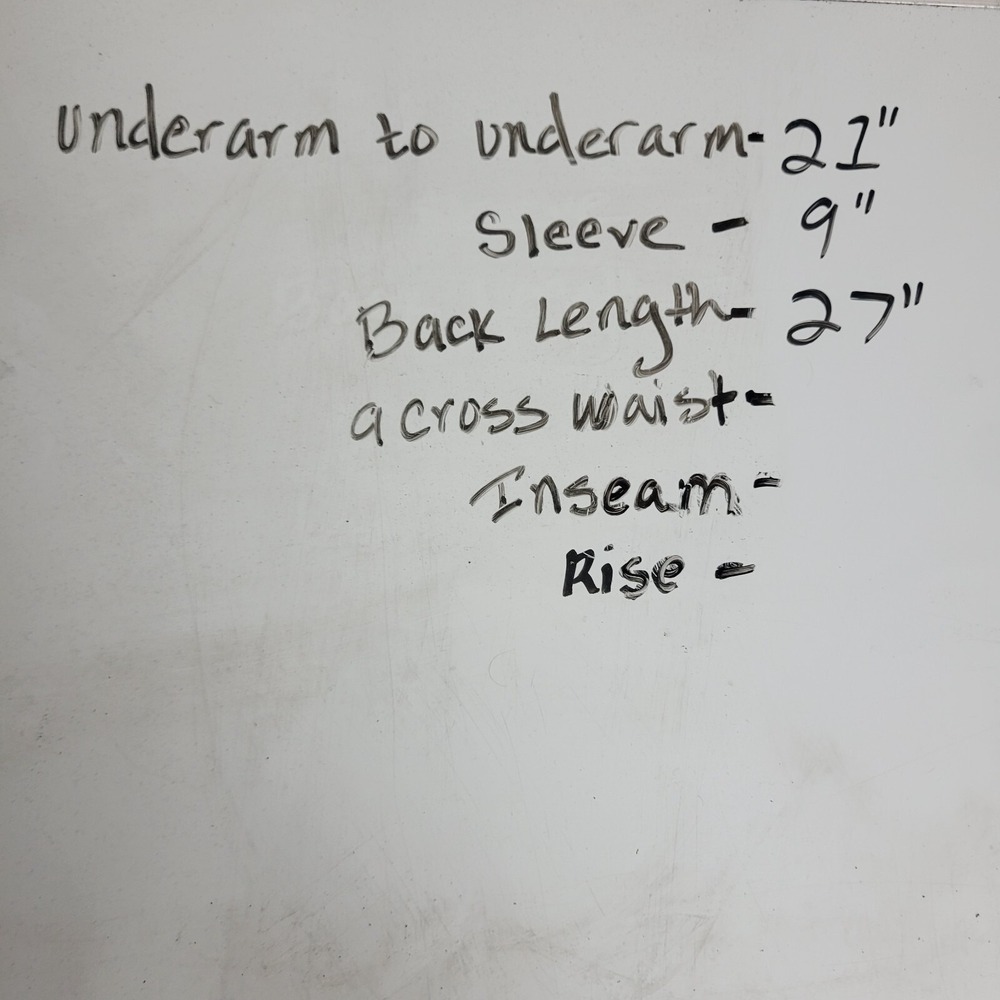 underarm to underarm- 21"
Sleeve - 9"
Back Length- 27"
across waist-
Inseam -
Rise -